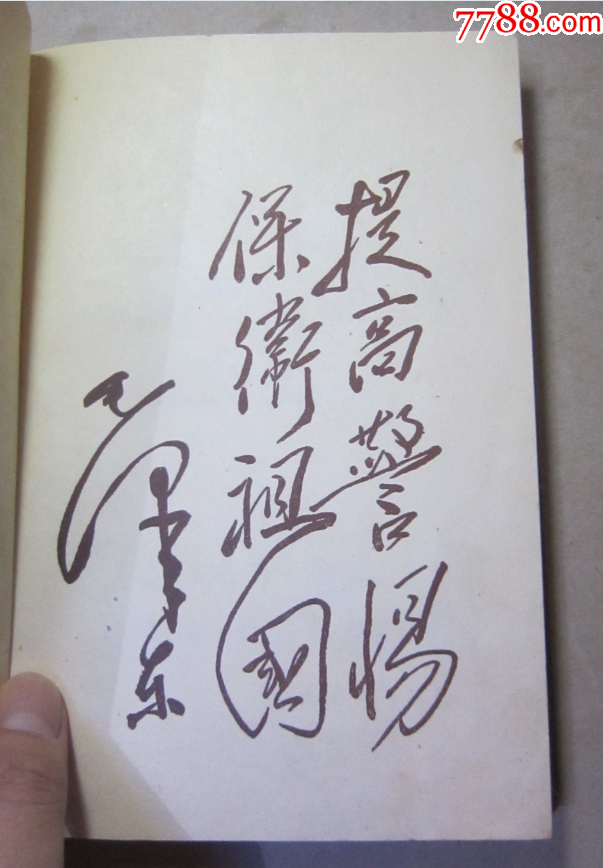 7788.com
提高警惕
保衛祖國
毛澤东